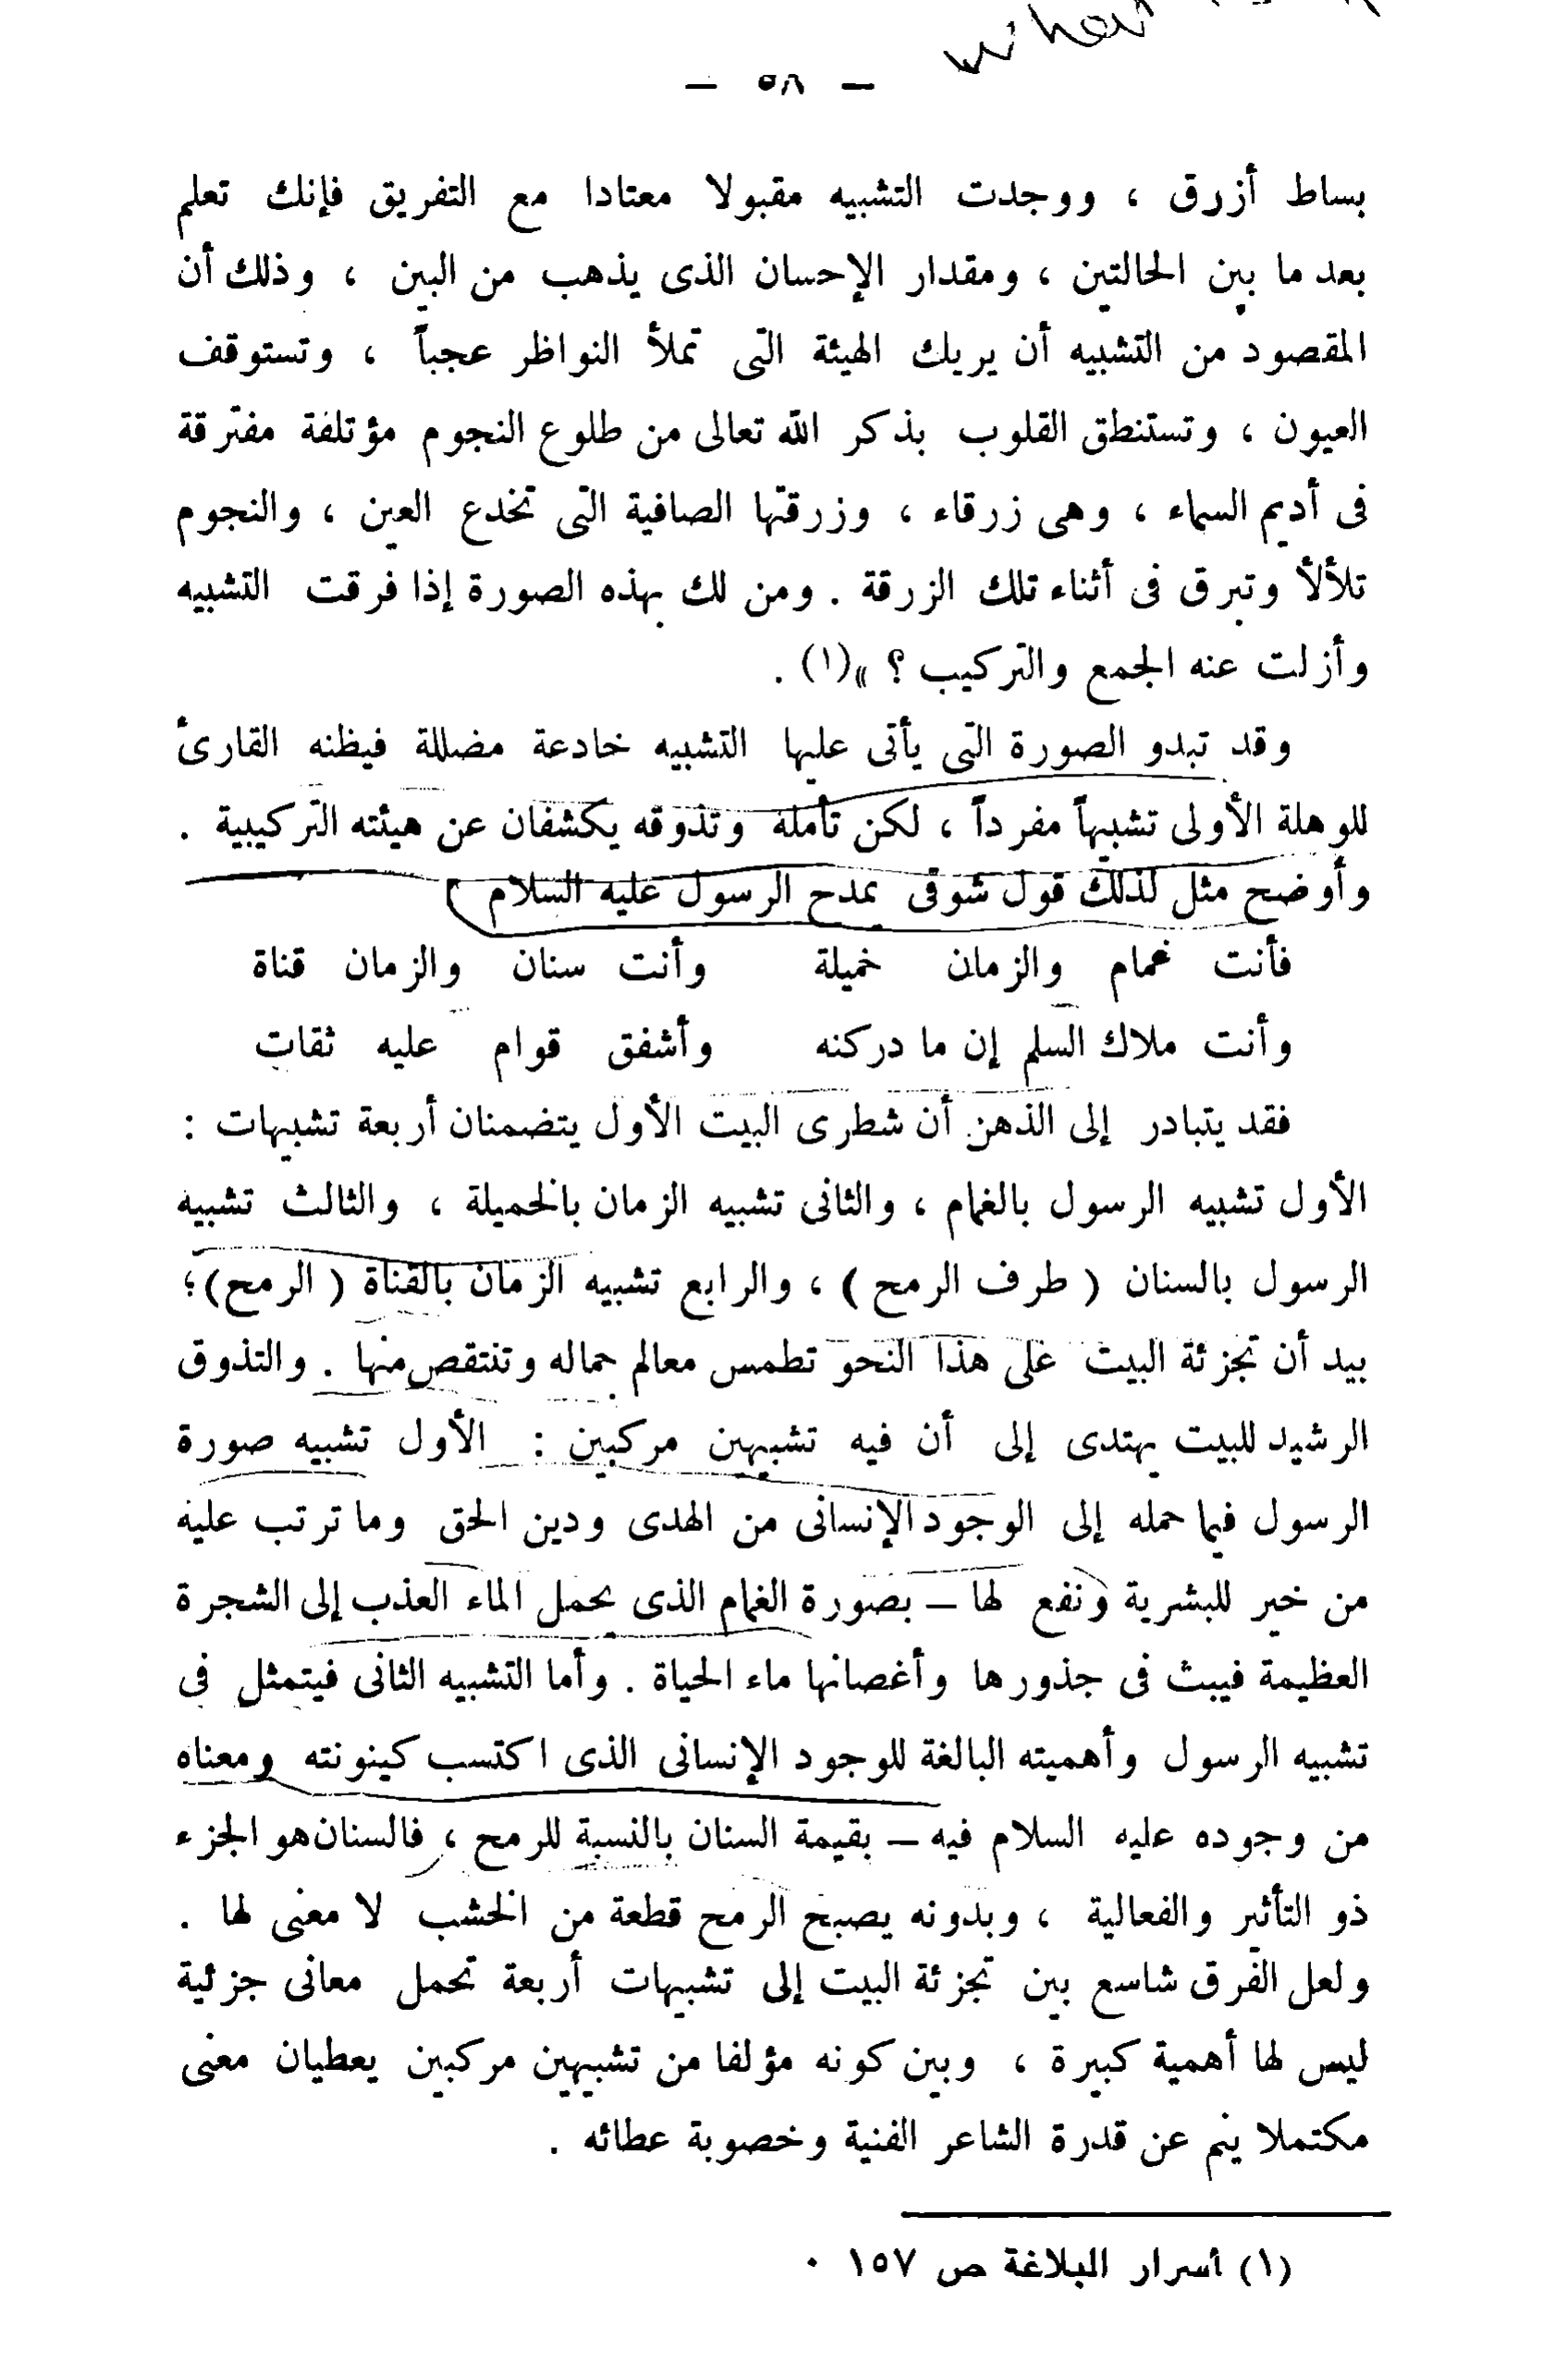 what
— ٥٨ —
بساط أزرق ، ووجدت التشبيه مقبولا معتادا مع التفريق فإنك تعلم
بعد ما بين الحالتين ، ومقدار الإحسان الذى يذهب من البين ، وذلك أن
المقصود من التشبيه أن يريك الهيئة التى تملأ النواظر عجباً ، وتستوقف
العيون ، وتستنطق القلوب بذكر الله تعالى من طلوع النجوم مؤتلفة مفترقة
فى أديم السماء ، وهى زرقاء ، وزرقتها الصافية التى تخدع العين ، والنجوم
تلألأ وتبرق فى أثناء تلك الزرقة . ومن لك بهذه الصورة إذا فرقت التشبيه
وأزلت عنه الجمع والتركيب ؟ »(١) .
وقد تبدو الصورة التى يأتى عليها التشبيه خادعة مضللة فيظنه القارئ
للوهلة الأولى تشبيهاً مفرداً ، لكن تأمله وتذوقه يكشفان عن هيئته التركيبية .
وأوضح مثل لذلك قول شوقى بمدح الرسول عليه السلام
فأنت غمام والزمان خميلة وأنت سنان والزمان قناة
وأنت ملاك السلم إن ما دركنه وأشفق قوام عليه ثقات
فقد يتبادر إلى الذهن أن شطرى البيت الأول يتضمنان أربعة تشبيهات :
الأول تشبيه الرسول بالغمام ، والثانى تشبيه الزمان بالخميلة ، والثالث تشبيه
الرسول بالسنان ( طرف الرمح ) ، والرابع تشبيه الزمان بالقناة ( الرمح)؛
بيد أن تجزئة البيت على هذا النحو تطمس معالم جماله وتنتقص منها . والتذوق
الرشيد للبيت يهتدى إلى أن فيه تشبيهين مركبين : الأول تشبيه صورة
الرسول فيما حمله إلى الوجود الإنسانى من الهدى ودين الحق وما ترتب عليه
من خير للبشرية ونفع لها — بصورة الغمام الذى يحمل الماء العذب إلى الشجرة
العظيمة فيبث فى جذورها وأغصانها ماء الحياة . وأما التشبيه الثانى فيتمثل فى
تشبيه الرسول وأهميته البالغة للوجود الإنسانى الذى اكتسب كينونته ومعناه
من وجوده عليه السلام فيه — بقيمة السنان بالنسبة للرمح ، فالسنان هو الجزء
ذو التأثير والفعالية ، وبدونه يصبح الرمح قطعة من الخشب لا معنى لها .
ولعل الفرق شاسع بين تجزئة البيت إلى تشبيهات أربعة تحمل معانى جزئية
ليس لها أهمية كبيرة ، وبين كونه مؤلفا من تشبيهين مركبين يعطيان معنى
مكتملا ينم عن قدرة الشاعر الفنية وخصوبة عطائه .
(١) أسرار البلاغة ص ١٥٧ ٠